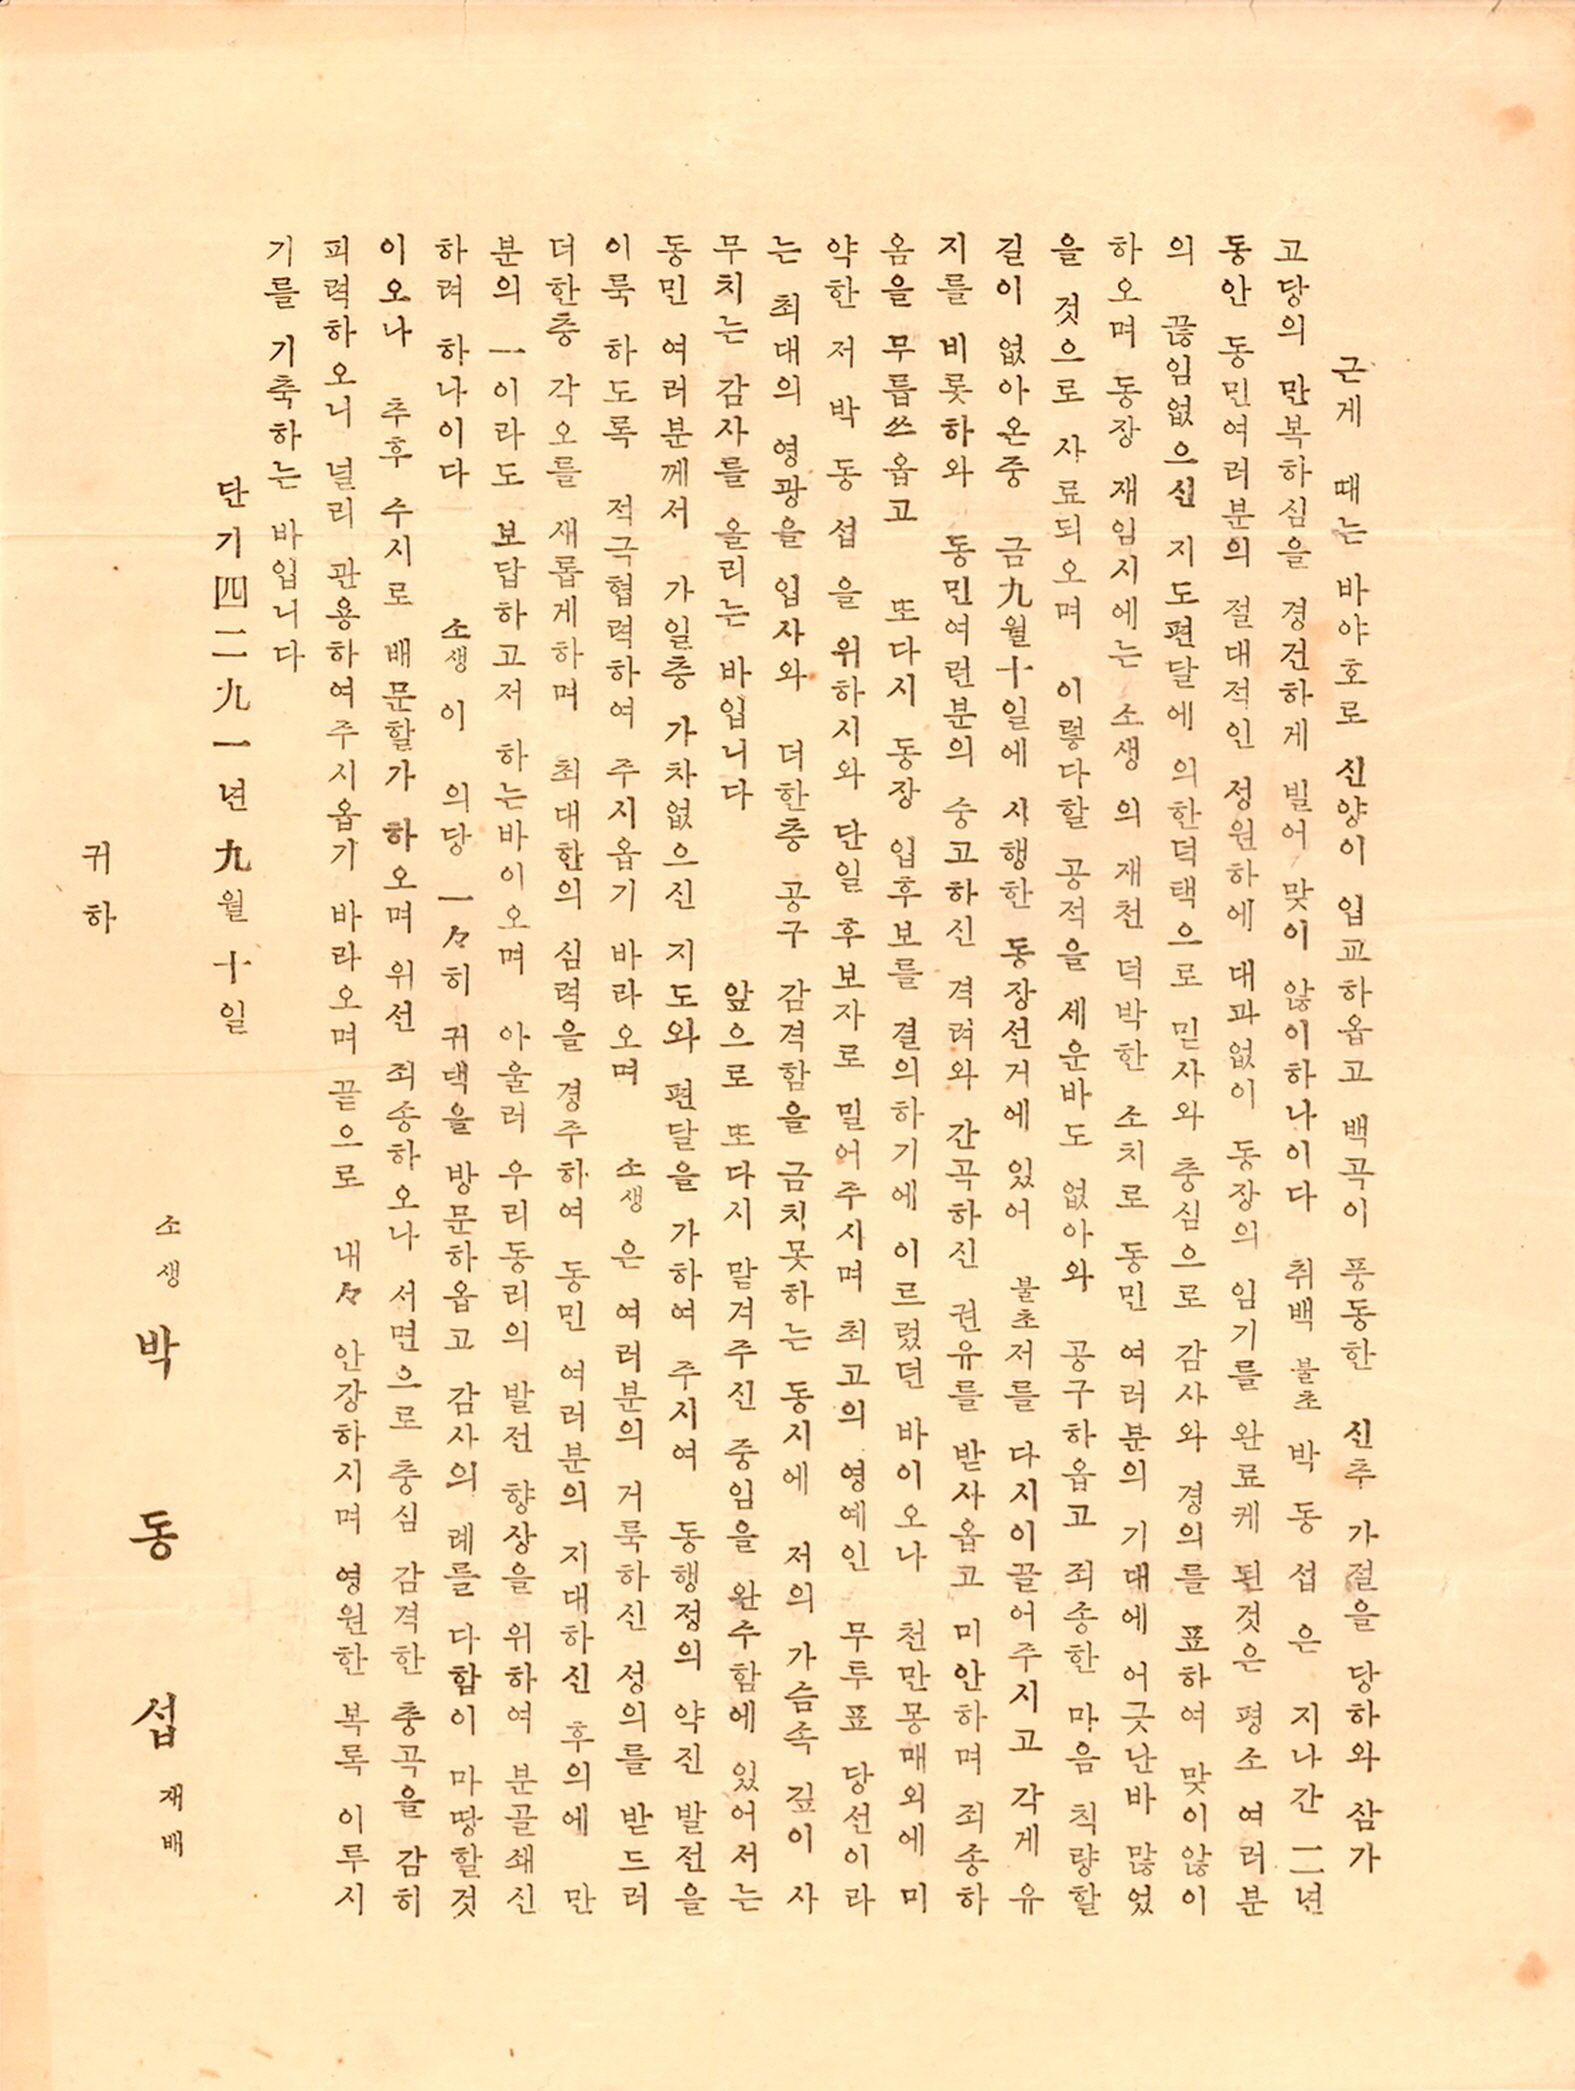 근게 때는 바야흐로 신양이 입교하옵고 백곡이 풍동한 신추 가절을 당하와 삼가
고당의 만복하심을 경건하게 빌어 맞이 않이하나이다 취백 불초 박 동 섭 은 지나간 二년
동안 동민여러분의 절대적인 정원하에 대과없이 동장의 임기를 완료케 된것은 평소 여러분
의 끊임없으신 지도편달에 의한덕택으로 믿사와 충심으로 감사와 경의를 표하여 맞이않이
하오며 동장 재임시에는 소생 의 재천 덕박한 소치로 동민 여러분의 기대에 어긋난바 많었
을 것으로 사료되오며 이렇다할 공적을 세운바도 없아와 공구하옵고 죄송한 마음 칙량할
길이 없아온중 금九월十일에 시행한 동장선거에 있어 불초저를 다시이끌어주시고 각게 유
지를 비롯하와 동민여런분의 숭고하신 격려와 간곡하신 권유를 받사옵고 미안하며 죄송하
옴을 무릅쓰옵고 또다시 동장 입후보를 결의하기에 이르렀던 바이오나 천만몽매외에 미
약한 저 박 동 섭 을 위하시와 단일 후보자로 밀어주시며 최고의 영예인 무투표 당선이라
는 최대의 영광을 입사와 더한층 공구 감격함을 금치못하는 동시에 저의 가슴속 깊이 사
무치는 감사를 올리는 바입니다 앞으로 또다시 맡겨주신 중임을 완수함에 있어서는
동민 여러분께서 가일층 가차없으신 지도와 편달을 가하여 주시여 동행정의 약진 발전을
이룩 하도록 적극협력하여 주시옵기 바라오며 소생 은 여러분의 거룩하신 성의를 받드러
더한층 각오를 새롭게하며 최대한의 심력을 경주하여 동민 여러분의 지대하신 후의에 만
분의 一이라도 보답하고저 하는바이오며 아울러 우리동리의 발전 향상을 위하여 분골쇄신
하려 하나이다 소생 이 의당 一々히 귀택을 방문하옵고 감사의 례를 다함이 마땅할것
이오나 추후 수시로 배문할가 하오며 위선 죄송하오나 서면으로 충심 감격한 충곡을 감히
피력하오니 널리 관용하여주시옵기 바라오며 끝으로 내々 안강하시며 영원한 복록 이루시
기를 기축하는 바입니다
단기四二九一년 九월 十일
소생 박 동 섭 재배
귀하